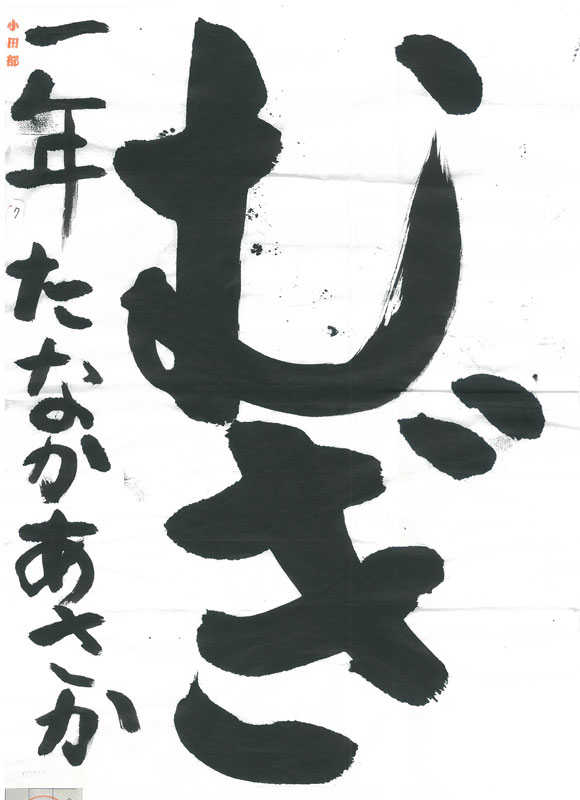 むぎ
一年 たなかあさか
小田部